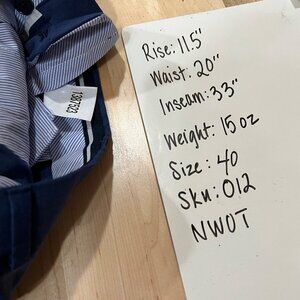 Rise: 11.5"
Waist: 20"
Inseam: 33"
Weight: 15 oz
Size: 40
Sku: 012
NWOT